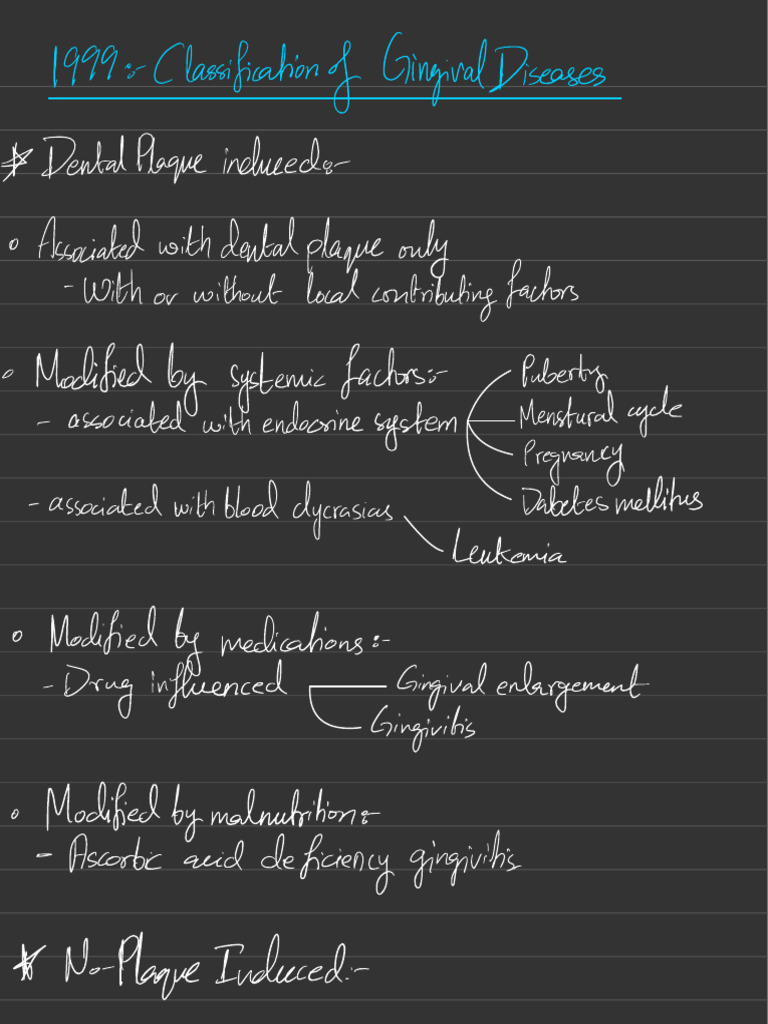 1999:- Classification of Gingival Diseases
* Dental Plaque induced:-
Associated with dental plaque only
- With or without local contributing factors
Modified by systemic factors:-
Puberty
- associated with endocrine system
Menstural cycle
Pregnancy
Dabetes mellitus
- associated with blood dycrasias
Leukemia
Modified by medications:-
- Drug influenced
Gingival enlargement
Gingivitis
Modified by malnutrition:-
- Ascorbic acid deficiency gingivitis
* No-Plaque Induced:-